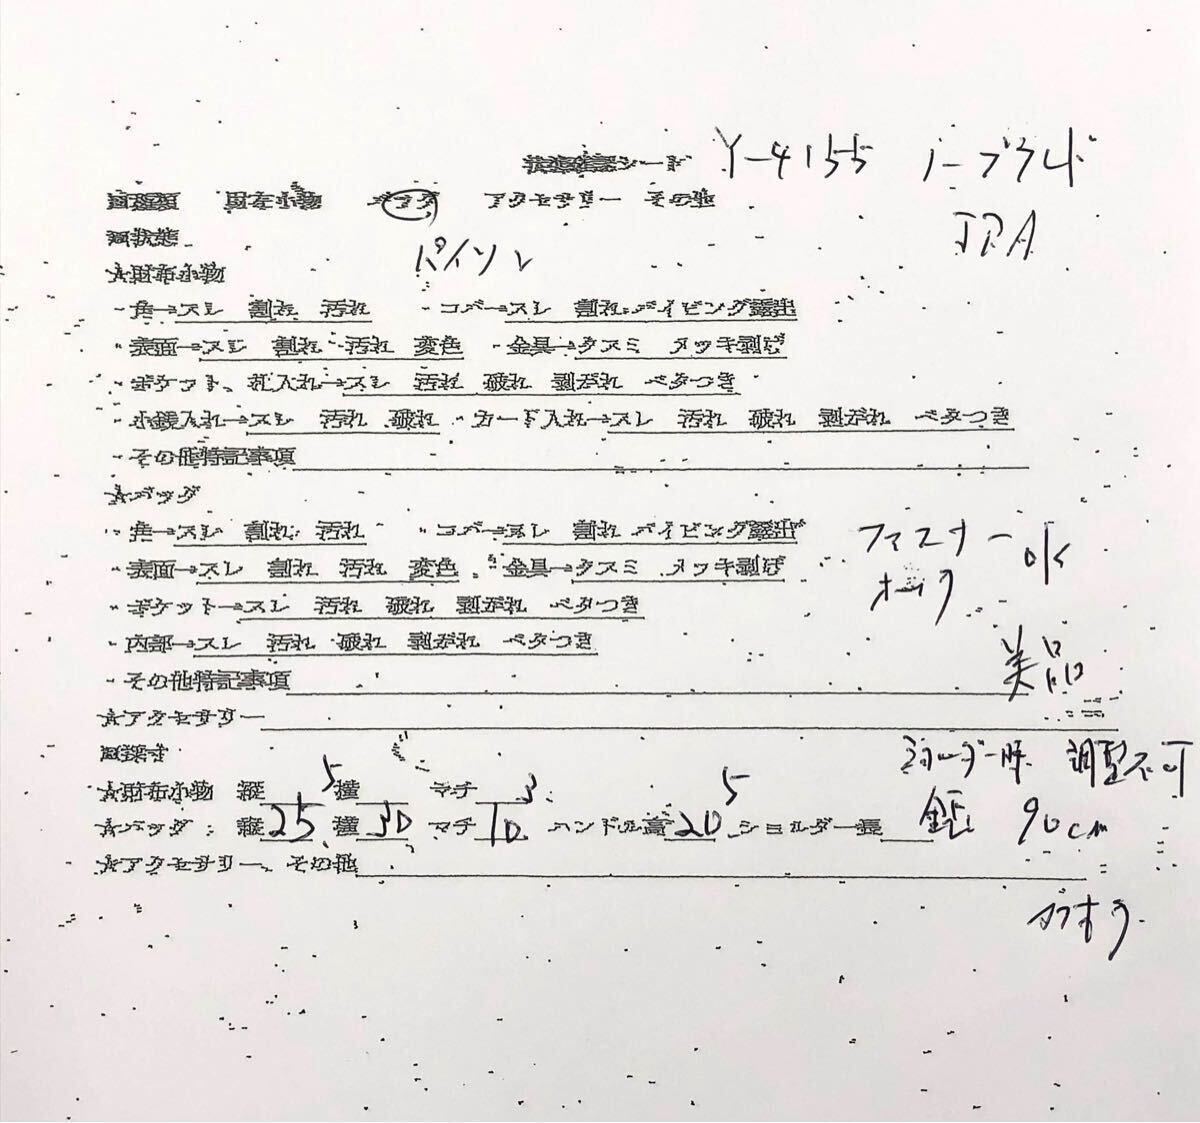 状態確認シート Y-4155 ノーブランド
財布小物 バッグ アクセサリー その他
JRA
■状態
パイソン
☆財布小物
・角→スレ 割れ 汚れ ・コバ→スレ 割れ パイピング露出
・表面→スレ 割れ 汚れ 変色 ・金具→クスミ メッキ剥げ
・ポケット、札入れ→スレ 汚れ 破れ 剥がれ ベタつき
・小銭入れ→スレ 汚れ 破れ ・カード入れ→スレ 汚れ 破れ 剥がれ ベタつき
・その他特記事項
☆バッグ
・角→スレ 割れ 汚れ ・コバ→スレ 割れ パイピング露出
ファスナー OK
・表面→スレ 割れ 汚れ 変色 ・金具→クスミ メッキ剥げ
・ポケット→スレ 汚れ 破れ 剥がれ ベタつき
・内部→スレ 汚れ 破れ 剥がれ ベタつき
美品
・その他特記事項
☆アクセサリー
■採寸
調整不可
☆財布小物 縦 横 マチ
5 3 5
☆バッグ:縦25 横30 マチ10 ハンドル高20 ショルダー長 90cm
☆アクセサリー、その他